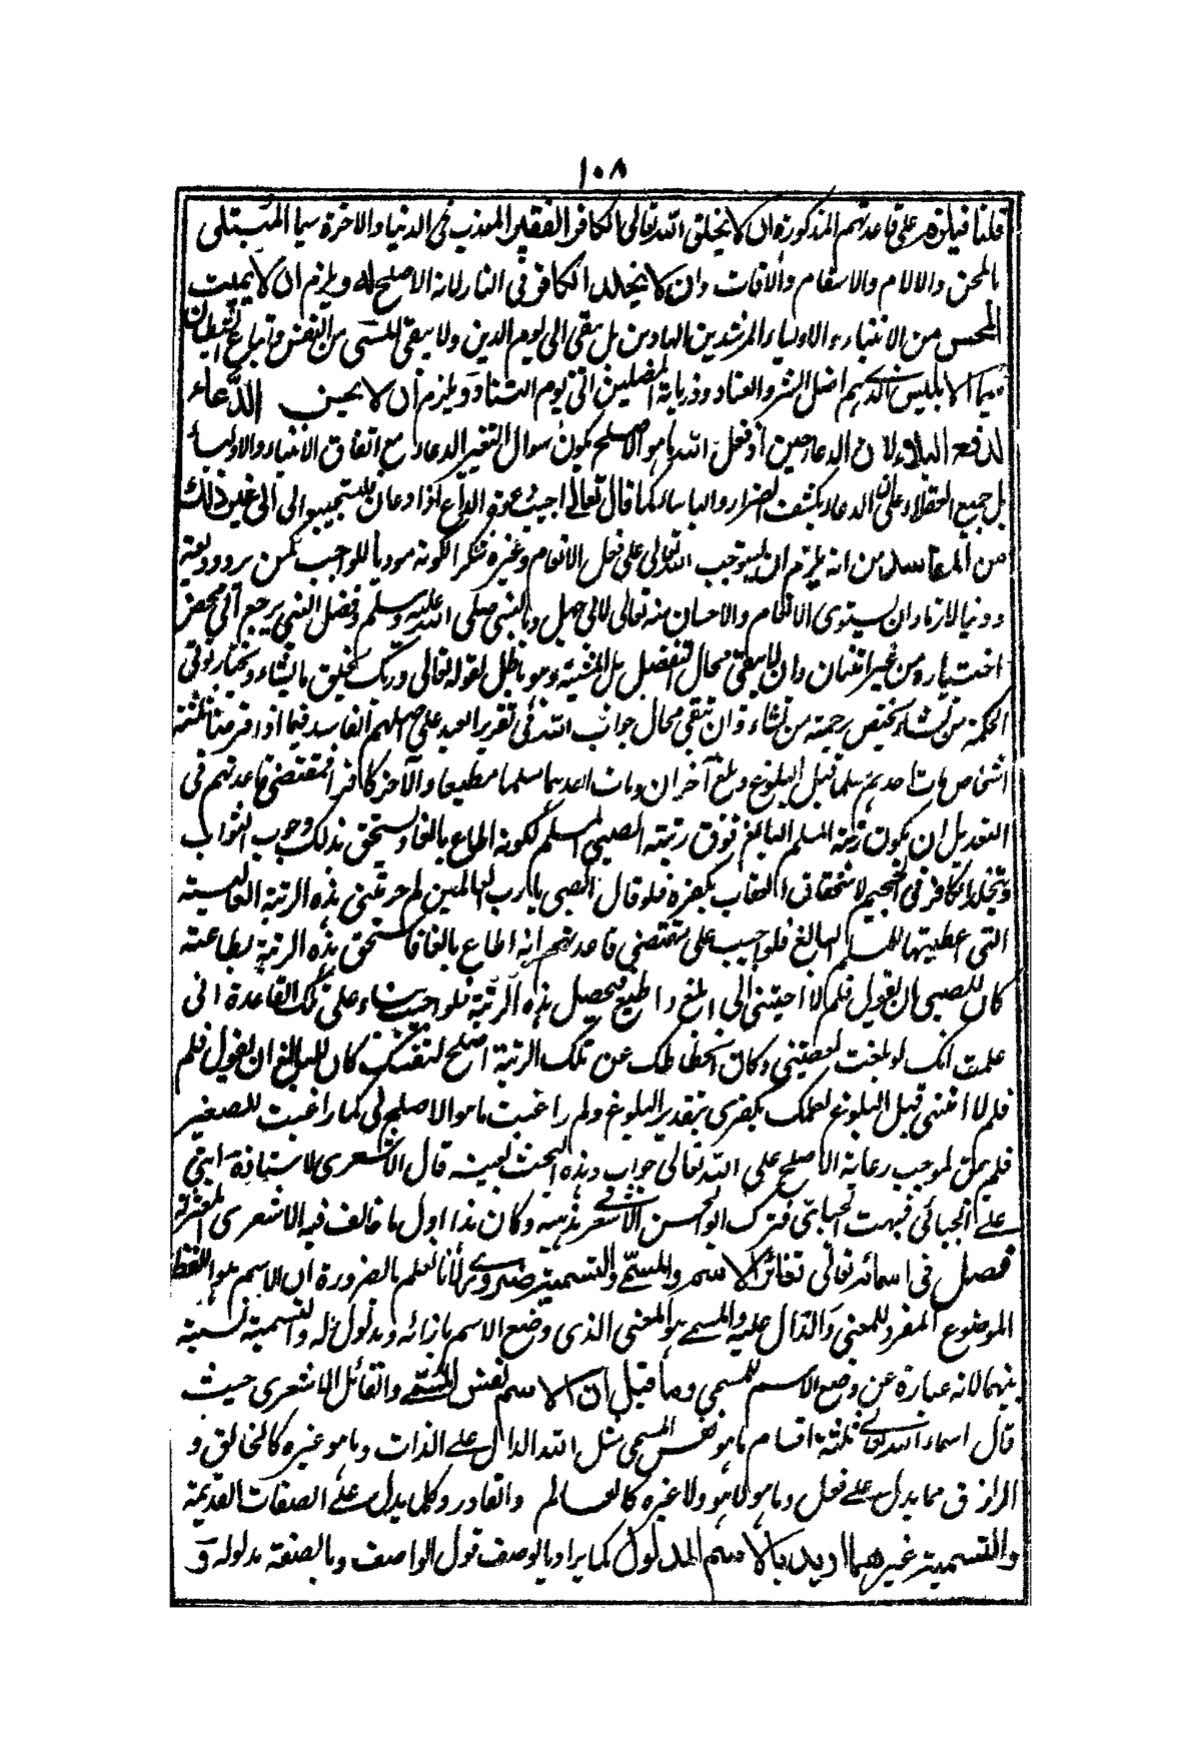 ١٠٨
قلنا فيلزم على قاعدتهم المذكورة ان لا يخلق الله تعالى الكافر الفقير المعذب فى الدنيا والاخرة سيما المبتلى
بالمحن والالام والاسقام والآفات وان لا يخلد الكافر فى النار لانه الاصلح له ويلزم ان لا يميت
المحسن من الانبياء والاولياء المرشدين الهادين بل يبقى الى يوم الدين ولا يبقى المسئ من النفس واتباع الشيطان
سيما الابليس الذى هم اضل الشر والعناد وذرياته المضلين الى يوم التناد ويلزم ان لا يحسن الدعاء
لدفع البلاء لان الدعاء حين اذ فعل الله ما هو الاصلح يكون سوال التغير الدعاء مع اتفاق الانبياء والاولياء
بل جميع العقلاء على ان الدعاء يكشف الضراء والباساء كما قال تعالى اجيب دعوة الداع اذا دعان فليستجيبوا لى الى غير ذلك
من المفاسد من انه يلزم ان يستوجب الله تعالى على فعل الانعام وغيره شكرا لكونه موديا للواجب كمن يرد وديعة
ودينا لازما وان يستوى الانعام والاحسان منه تعالى لابى جهل وبالنبى صلى الله عليه وسلم وفضل النبى يرجع الى محض
اختياره من غير امتنان وان لا يبقى مجال التفضل بل المشية وهو باطل لقوله تعالى وربك يخلق ما يشاء ويختار يؤتى
الحكمة من يشاء يختص برحمته من يشاء وان تبقى مجال جواب الله فى تقرير العبد على اصلهم الفاسد فيما اذا فرضنا ثلثة
اشخاص مات احدهم مسلما قبل البلوغ وبلغ آخران ومات احدهما مسلما مطيعا والآخر كافرا فمقتضى قاعدتهم فى
التعديل ان يكون رتبة المسلم البالغ فوق رتبته الصبى المسلم لكونه اطاع بالغا ويستحق بذلك وجوب الثواب
وتخلد الكافر فى الجحيم لاستحقاق العقاب بكفره فلو قال الصبى يا رب العالمين لم حرمتنى هذه الرتبة العالية
التى اعطيتها للمسلم البالغ فلو اجيب على مقتضى قاعدتهم انه اطاع بالغا فاستحق هذه الرتبة بطاعته
كان للصبى ان يقول فلم لا احيتنى الى ابلغ واطيع فيحصل هذه الرتبة فلو اجيب بناء على تلك القاعدة انى
علمت انك لو بلغت لعصيتنى وكان انحطاطك عن تلك الرتبة اصلح لنفسك كان للبالغ ان يقول فلم
فلم لا امتنى قبل البلوغ لعلمك بكفرى بتقدير البلوغ ولم راغبت ما هو الاصلح لى كما راغبت للصغير
فلم يبق لموجب رعاية الاصلح على الله تعالى جواب وهذه البحث بعينه قال الاشعرى لاستاذه ابى
على الجبائى فبهت الجبائى فترك ابو الحسن الاشعرى مذهبه وكان هذا اول ما خالف فيه الاشعرى المعتزلة
فصل فى اسمائه تعالى تغائر الاسم والمسمى والتسمية ضرورى لانا نعلم بالضرورة ان الاسم هو اللفظ
الموضوع المفرد للمعنى والدال عليه والمسمى هو المعنى الذى وضع الاسم بازائه ومدلول له والتسمية نسبة
بينهما لانه عبارة عن وضع الاسم للمسمى وما قيل ان الاسم نفس المسمى والقائل الاشعرى حيث
قال اسماء الله تعالى ثلثة اقسام ما هو نفس المسمى مثل الله الدال على الذات وما هو غيره كالخالق و
الرازق مما يدل على فعل وما هو لا هو ولا غيره كالعالم والقادر وكلما يدل على الصفات القديمة
والتسمية غيرهما اريد بالاسم المدلول كما يراد بالوصف قول الواصف وبالصفة مدلوله ق